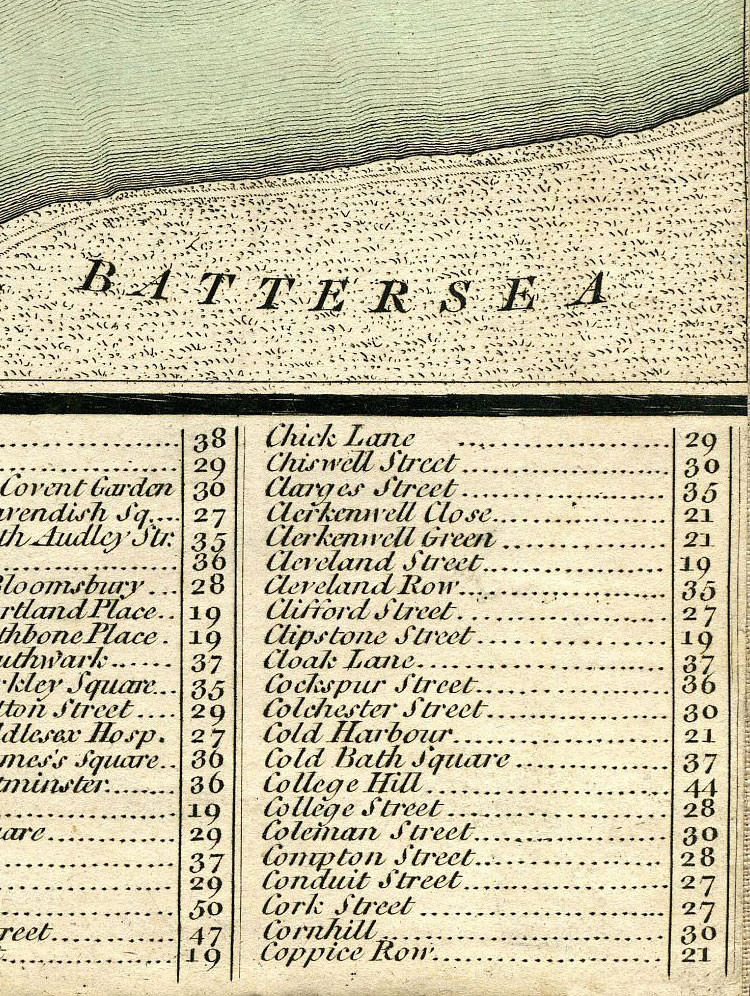 BATTERSEA
38
29
Covent Garden 30
avendish Sq. 27
th Audley Str. 35
36
Bloomsbury 28
rtland Place 19
thbone Place 19
uthwark 37
rkley Square 35
tton Street 29
ddlesex Hosp. 27
mes's Square 36
tminster 36
19
uare 29
37
29
50
reet 47
19
Chick Lane 29
Chiswell Street 30
Clarges Street 35
Clerkenwell Close 21
Clerkenwell Green 21
Cleveland Street 19
Cleveland Row 35
Clifford Street 27
Clipstone Street 19
Cloak Lane 37
Cockspur Street 36
Colchester Street 30
Cold Harbour 21
Cold Bath Square 37
College Hill 44
College Street 28
Coleman Street 30
Compton Street 28
Conduit Street 27
Cork Street 27
Cornhill 30
Coppice Row 21